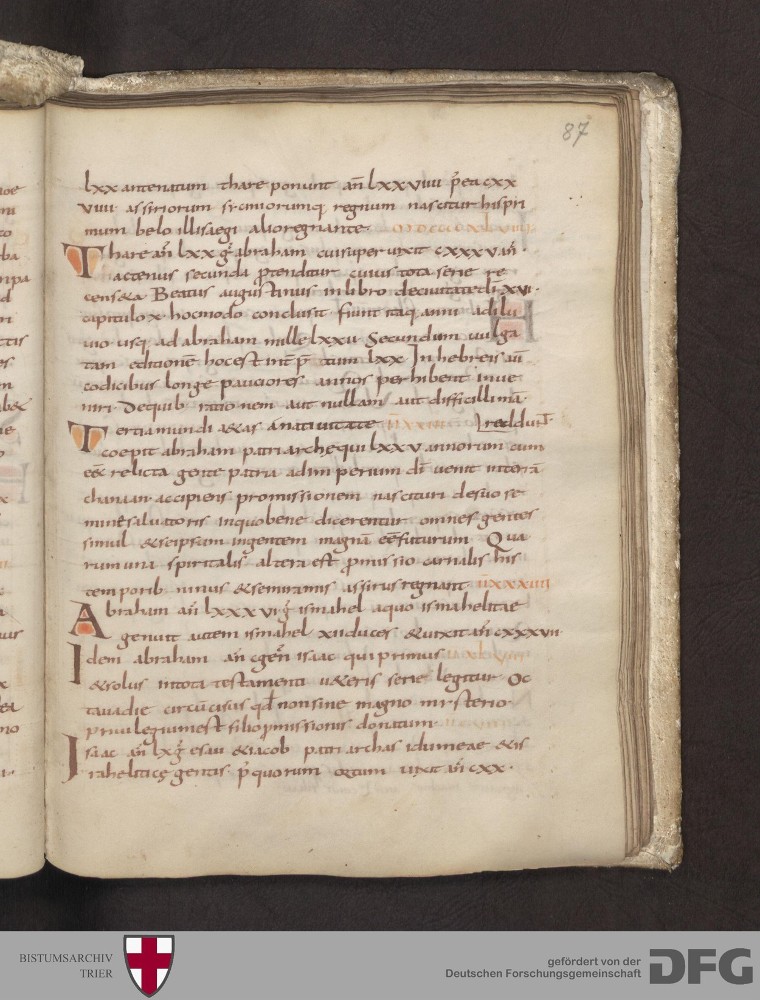 87
lxx antenatum thare ponunt an̄ lxxviiii p̄ ea cxx
viiii assiriorum siciniorumq; regnum nascitur his pri
mum belo illis aegialio regnante
Thare an̄ lxx ḡ abraham cui supervixit cxxxv an̄.
actenus secunda p̄tenditur cuius tota serie re
censita Beatus augustinus in libro de civitate dī xvi.
capitulo x. hoc modo conclusit. fiunt itaq; anni a dilu
vio usq; ad abraham mille lxxii Secundum vulga
tam editionē hoc est int̄p̄tum lxx In hebreis aū
codicibus longe pauciores annos perhibent inve
niri. De quib; rationem aut nullam aut difficillimā
Tertia mundi aetas a nativitate reddunt
coepit abraham patriarche qui lxxv annorum cum
eēt relicta gente patria ad imperium dī venit in terrā
chanaan accipiens promissionem nascituri de suo se
mine salvatoris in quo bene dicerentur omnes gentes
simul & se ipsum in gentem magnā eē futurum Qua
rum una spiritalis altera est promissio carnalis his
temporib; ninus & semiramis assirus regnant īīxxxiiii
Abraham an̄ lxxxvi ḡ ismahel a quo ismahelitae
genuit autem ismahel xii duces & vixit an̄ cxxxvii
Idem abraham an̄ c geñ isaac qui primus
& solus in tota testamenti veteris serie legitur oc
tava die circūcisus qđ non sine magno misterio
privilegium est filio p̄missionis donatum
Isaac an̄ lx ḡ esau & iacob patriarchas idumeae & is
rahelitice gentis p̄ quorum ortum vixit an̄ cxx.
BISTUMSARCHIV
TRIER
gefördert von der
Deutschen Forschungsgemeinschaft
DFG